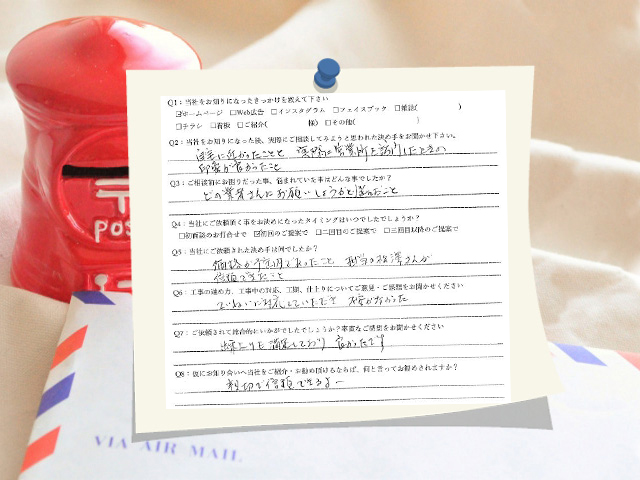 〒
POS
Q1：当社をお知りになったきっかけを教えて下さい
☑ホームページ □Web広告 □インスタグラム □フェイスブック □雑誌( )
□チラシ □看板 □ご紹介( 様) □その他( )
Q2：当社をお知りになった後、実際にご相談してみようと思われた決め手をお聞かせ下さい。
自宅に近かったことと 実際に営業所を訪問したときの
印象が良かったこと
Q3：ご相談前にお困りだった事、悩まれていた事はどんな事でしたか？
どの業者さんにお願いしようかと
Q4：当社にご依頼頂く事をお決めになったタイミングはいつでしたでしょうか？
□初商談のお打合せで ☑初回のご提案で □二回目のご提案で □三回目以降のご提案で
Q5：当社にご依頼された決め手は何でしたか？
価格が予算内であったこと 担当の さんが
信頼できたこと
Q6：工事の進め方、工事中の対応、工期、仕上りについてご意見・ご感想をお聞かせください
ていねいに対応していただき 不安がなかった
Q7：ご依頼されて総合的にいかがでしたでしょうか？率直なご感想をお聞かせください
仕上りも満足しており 良かったです
Q8：仮にお知り合いへ当社をご紹介・お勧め頂けるならば、何と言ってお勧めされますか？
親切で信頼できるよー
VIA AIR MAIL